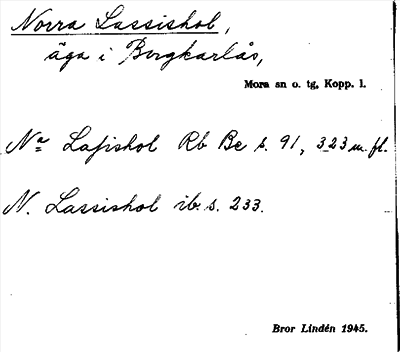 Norra Lassishol,
äga i Bergkarlås,
Mora sn o. tg, Kopp. l.
Na Lafishol Rb Be s. 91, 323 m. fl.
N. Lassishol ib. s. 233.
Bror Lindén 1945.